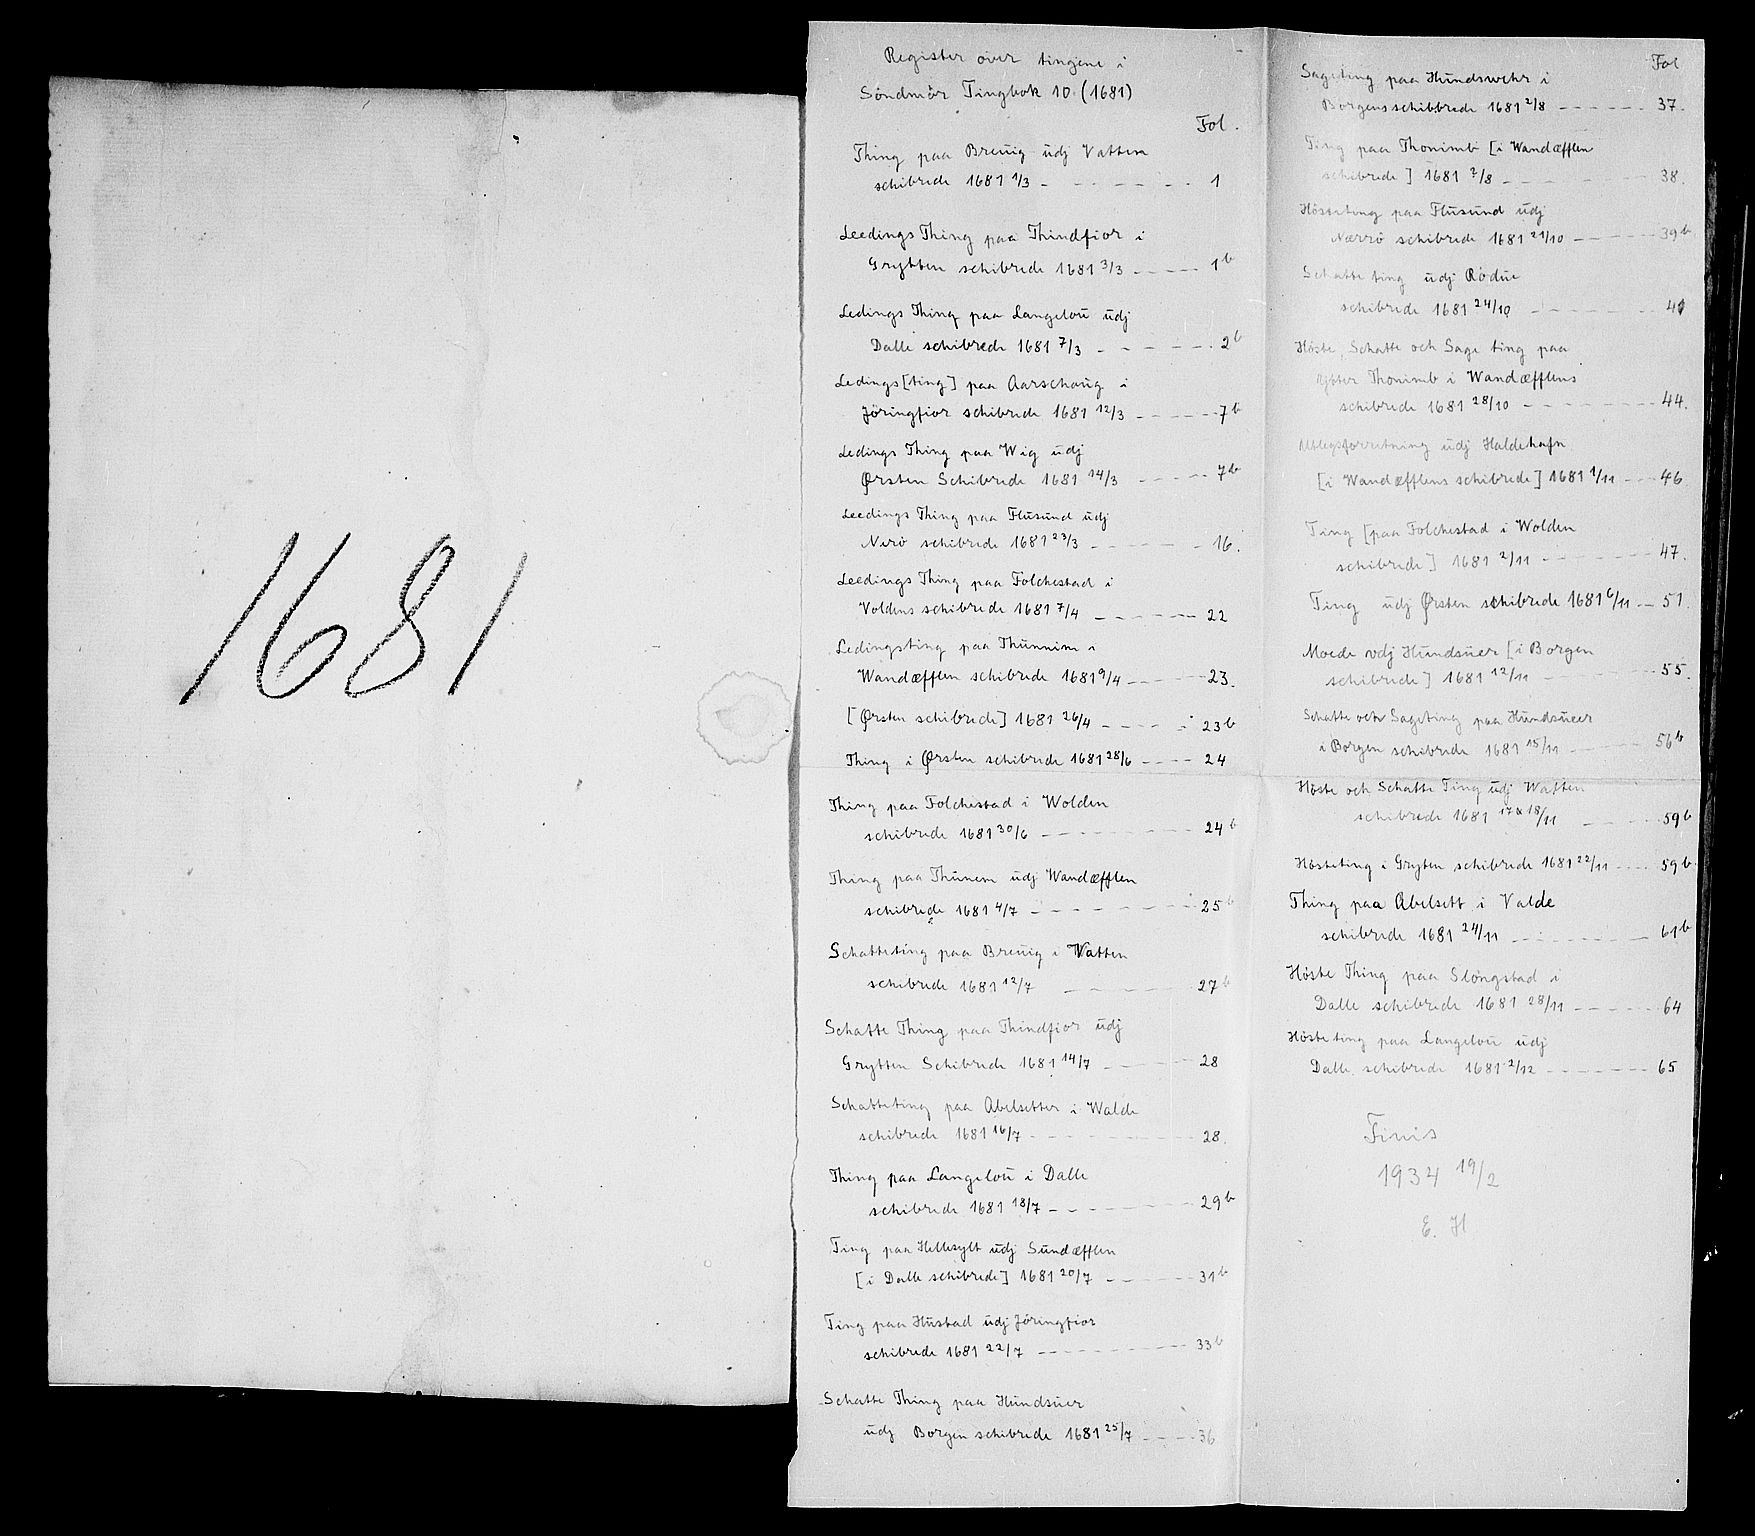 1681
Register over tingene i
Söndmör Tingbok 10 (1681)
Fol.
Thing paa Breuig udj Vatten
schibrede 1681 1/3 - - - - - - 1
Leedings Thing paa Thindfior i
Grytten schibrede 1681 3/3 - - - - 1 b
Ledings Thing paa Langeloü üdj
Dalle schibrede 1681 7/3 - - - - - - 2 b
Ledings[ting] paa Aarschoug i
Jöringfior schibrede 1681 12/3 - - - - - 7 b
Ledings Thing paa Wig üdj
Ørsten Schibrede 1681 14/3 - - - - 7 b
Leedings Thing paa Flüsund üdj
Nerö schibrede 1681 23/3 - - - - - 16.
Leedings Thing paa Folchestad i
Voldens schibrede 1681 7/4 - - - - - - 22
Ledingsting paa Thünnim i
Wandæfflen schibrede 1681 9/4 - - - - - 23.
[Ørsten schibrede] 1681 26/4 - - - - 23 b
Thing i Ørsten schibrede 1681 28/6 - - - - 24
Thing paa Folchestad i Wolden
schibrede 1681 30/6 - - - - - - - 24 b
Thing paa Thünem üdj Wandæfflen
schibrede 1681 4/7 - - - - - - - 25 b
Schatteting paa Breuig i Vatten
schibrede 1681 12/7 - - - - - - 27 b
Schatte Thing paa Thindfior üdj
Grytten Schibrede 1681 14/7 - - - - - 28
Schatteting paa Abelsetter i Walde
schibrede 1681 16/7 - - - - - - - 28.
Thing paa Langeloü i Dalle
schibrede 1681 18/7 - - - - - - - 29 b
Ting paa Hellesylt üdj Sündæfflen
[i Dalle schibrede] 1681 20/7 - - - - - 31 b
Ting paa Hüstad üdj Jöringfior
schibrede 1681 22/7 - - - - - - - 33 b
Schatte Thing paa Hündsüer
üdj Borgen schibrede 1681 25/7 - - - - 36
Fol
Sageting paa Hündswehr i
Borgens schibbrede 1681 2/8 - - - - - - 37.
Ting paa Thonimb [i Wandæfflen
schibrede] 1681 7/8 - - - - - - - 38.
Hösteting paa Flüsund üdj
Nærrö schibrede 1681 21/10 - - - - - 39 b
Schatte ting üdj Rödüe
schibrede 1681 24/10 - - - - - - 41
Höste, Schatte och Sage ting paa
Thonimb i Wandæfflens
schibrede 1681 28/10 - - - - - - - 44.
Utlegsforretning üdj Haldehafn
[i Wandæfflens schibrede] 1681 1/11 - - - 46.
Ting [paa Folchestad i Wolden
schibrede] 1681 2/11 - - - - - - 47.
Ting üdj Ørsten schibrede 1681 6/11 - - 51.
Moede vdj Hündsüer [i Borgen
schibrede] 1681 12/11 - - - - - - 55.
Schatte och Sageting paa Hündsüeer
i Borgen schibrede 1681 15/11 - - - - - 56 b
Höste och Schatte Ting üdj Watten
schibrede 1681 17 & 18/11 - - - - - 59 b
Hösteting i Gryten schibrede 1681 22/11 - - - - 59 b
Thing paa Abelsett i Valde
schibrede 1681 24/11 - - - - - - 61 b
Höste Thing paa Slöngstad i
Dalle schibrede 1681 28/11 - - - - - - 64
Hösteting paa Langeloü üdj
Dalle schibrede 1681 2/12 - - - - - - - 65
Finis
1934 19/2
E. H